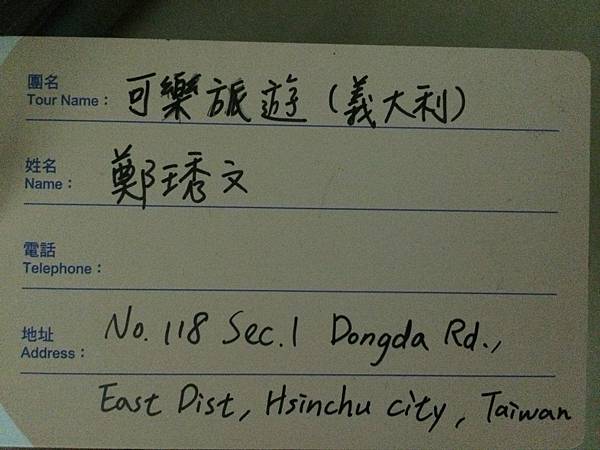 團名
Tour Name： 可樂旅遊（義大利）
姓名
Name： 鄭琇文
電話
Telephone：
地址
Address： No. 118 Sec. 1 Dongda Rd.,
East Dist, Hsinchu city, Taiwan